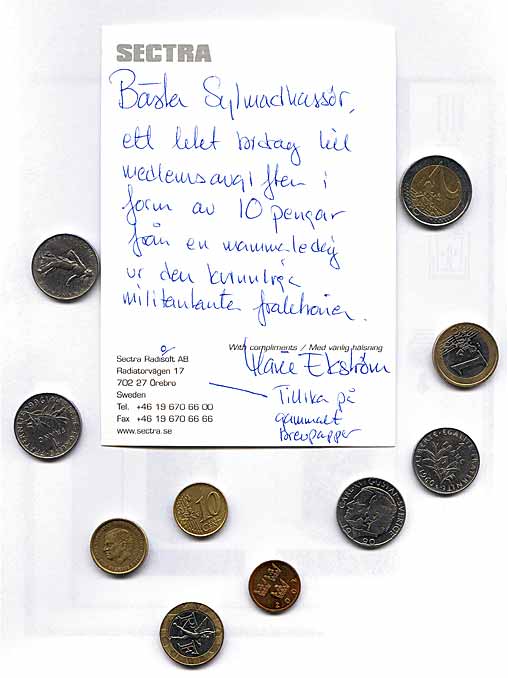 SECTRA
Bästa Sylmadkassör,
ett litet bidrag till
medlemsavgiften i
form av 10 pengar
från en mammaledig
ur den kvinnliga
militanta
With compliments / Med vänlig hälsning
Sectra Radisoft AB
Radiatorvägen 17
702 27 Örebro
Sweden
Tel. +46 19 670 66 00
Fax +46 19 670 66 66
www.sectra.se
Marie Ekström
Tillika på
gammalt
brevpapper
2
1
10
CENT
CARL XVI GUSTAF SVERIGE
2001